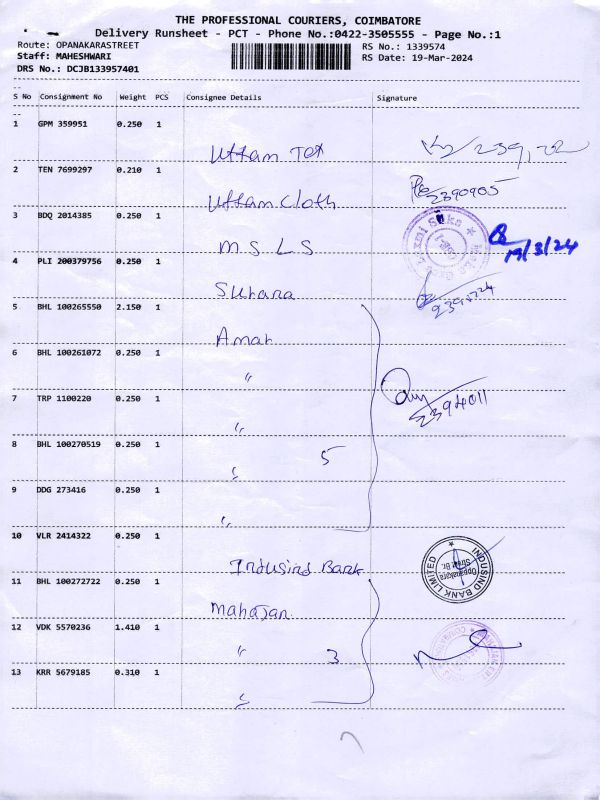 THE PROFESSIONAL COURIERS, COIMBATORE
Delivery Runsheet - PCT - Phone No.:0422-3505555 - Page No.:1
Route: OPANAKARASTREET RS No.: 1339574
Staff: MAHESHWARI RS Date: 19-Mar-2024
DRS No.: DCJB133957401
S No Consignment No Weight PCS Consignee Details Signature
1 GPM 359951 0.250 1
Uttam Tex 239,722
2 TEN 7699297 0.210 1
Uttam Cloth 2390905
3 BDQ 2014385 0.250 1
M S L S 19/3/24
4 PLI 200379756 0.250 1
Suhana
5 BHL 100265550 2.150 1
Amar
6 BHL 100261072 0.250 1
"
7 TRP 1100220 0.250 1 2394011
"
8 BHL 100270519 0.250 1
" 5
9 DDG 273416 0.250 1
"
10 VLR 2414322 0.250 1
Indusind Bank INDUSIND BANK LIMITED
11 BHL 100272722 0.250 1
Mahajan
12 VDK 5570236 1.410 1
" 3
13 KRR 5679185 0.310 1
"